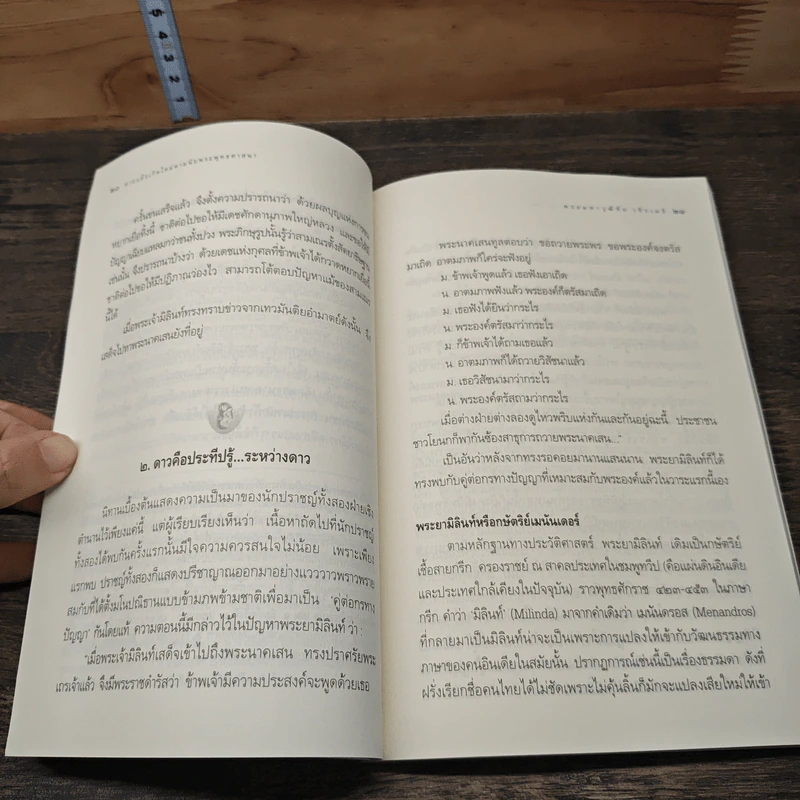 5
4
3
2
1
ครั้นขนเสร็จแล้ว จึงตั้งความปรารถนาว่า ด้วยผลบุญแห่งการขน
หยากเยื่อทั้งนี้ ชาติต่อไปขอให้มีเดชศักดานุภาพใหญ่หลวง และขอให้มี
ปัญญาเฉียบแหลมกว่าชนทั้งปวง พระภิกษุรูปนั้นรู้ว่าสามเณรตั้งสัตยาธิษฐาน
เช่นนั้น จึงปรารถนาบ้างว่า ด้วยเดชแห่งกุศลที่ข้าพเจ้าได้กวาดหยากเยื่อนี้
ชาติต่อไปขอให้มีปฏิภาณว่องไว สามารถโต้ตอบปัญหาแม้ของสามเณร
นี้ได้
เมื่อพระเจ้ามิลินท์ทรงทราบข่าวจากเทวมันติยอำมาตย์ดังนั้น จึง
เสด็จไปหาพระนาคเสนยังที่อยู่
๒. ดาวคือประทีปรู้...ระหว่างดาว
นิทานเบื้องต้นแสดงความเป็นมาของนักปราชญ์ทั้งสองฝ่ายเชิง
ตำนานไว้เพียงแค่นี้ แต่ผู้เรียบเรียงเห็นว่า เนื้อหาถัดไปที่นักปราชญ์
ทั้งสองได้พบกันครั้งแรกนั้นมีใจความควรสนใจไม่น้อย เพราะเพียง
แรกพบ ปราชญ์ทั้งสองก็แสดงปรีชาญาณออกมาอย่างแวววาวพราวพราย
สมกับที่ได้ตั้งมโนปณิธานแบบข้ามภพข้ามชาติเพื่อมาเป็น 'คู่ต่อกรทาง
ปัญญา' กันโดยแท้ ความตอนนี้มีกล่าวไว้ในปัญหาพระยามิลินท์ ว่า :
"เมื่อพระเจ้ามิลินท์เสด็จเข้าไปถึงพระนาคเสน ทรงปราศรัยพระ
เถรเจ้าแล้ว จึงมีพระราชดำรัสว่า ข้าพเจ้ามีความประสงค์จะพูดด้วยเธอ
พระนาคเสนทูลตอบว่า ขอถวายพระพร ขอพระองค์จงตรัส
มาเถิด อาตมภาพก็ใคร่จะฟังอยู่
ม. ข้าพเจ้าพูดแล้ว เธอฟังเอาเถิด
น. อาตมภาพฟังแล้ว พระองค์ก็ตรัสมาเถิด
ม. เธอฟังได้ยินว่ากระไร
น. พระองค์ตรัสมาว่ากระไร
ม. ก็ข้าพเจ้าได้ถามเธอแล้ว
น. อาตมภาพก็ได้ถวายวิสัชนาแล้ว
ม. เธอวิสัชนามาว่ากระไร
น. พระองค์ตรัสถามว่ากระไร
เมื่อต่างฝ่ายต่างลองดูไหวพริบแห่งกันและกันอยู่ฉะนี้ ประชาชน
ชาวโยนกก็พากันซ้องสาธุการถวายพระนาคเสน..."
เป็นอันว่าหลังจากทรงรอคอยมานานแสนนาน พระยามิลินท์ก็ได้
ทรงพบกับคู่ต่อกรทางปัญญาที่เหมาะสมกับพระองค์แล้วในวาระแรกนี้เอง
พระยามิลินท์หรือกษัตริย์เมนันเดอร์
ตามหลักฐานทางประวัติศาสตร์ พระยามิลินท์ เดิมเป็นกษัตริย์
เชื้อสายกรีก ครองราชย์ ณ สาคลประเทศในชมพูทวีป (คือแผ่นดินอินเดีย
และประเทศใกล้เคียงในปัจจุบัน) ราวพุทธศักราช ๔๒๓-๔๕๓ ในภาษา
กรีก คำว่า 'มิลินท์' (Milinda) มาจากคำเดิมว่า เมนันดรอส (Menandros)
ที่กลายมาเป็นมิลินท์น่าจะเป็นเพราะการแปลงให้เข้ากับวัฒนธรรมทาง
ภาษาของคนอินเดียในสมัยนั้น ปรากฏการณ์เช่นนี้เป็นเรื่องธรรมดา ดังที่
ฝรั่งเรียกชื่อคนไทยได้ไม่ชัดเพราะไม่คุ้นลิ้นก็มักจะแปลงเสียใหม่ให้เข้า